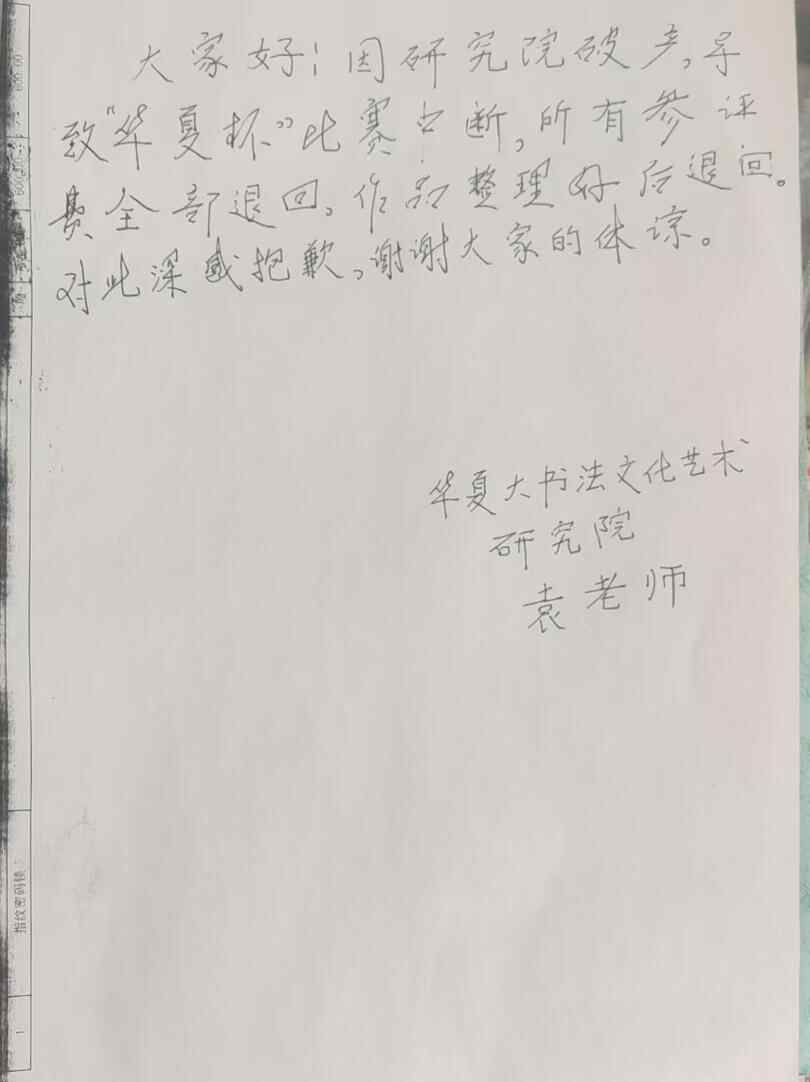 大家好！因研究院破产，导
致“华夏杯”比赛中断，所有参评
费全部退回。作品整理好后退回。
对此深感抱歉，谢谢大家的体谅。
华夏大书法文化艺术
研究院
袁老师
指纹密码锁
1